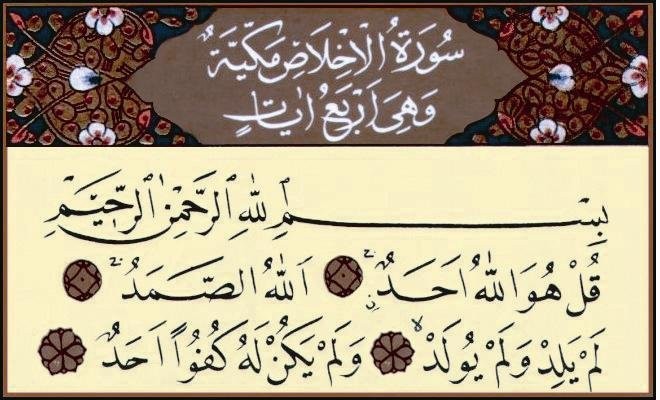 سُورَةُ الْاِخْلَاصِ مَكِّيَّةٌ
وَهِىَ اَرْبَعُ اٰيَاتٍ
بِسْمِ اللّٰهِ الرَّحْمٰنِ الرَّحِيمِ
قُلْ هُوَ اللّٰهُ اَحَدٌ ۚ اَللّٰهُ الصَّمَدُ ۚ
لَمْ يَلِدْ وَلَمْ يُولَدْ ۙ وَلَمْ يَكُنْ لَهُ كُفُوًا اَحَدٌ